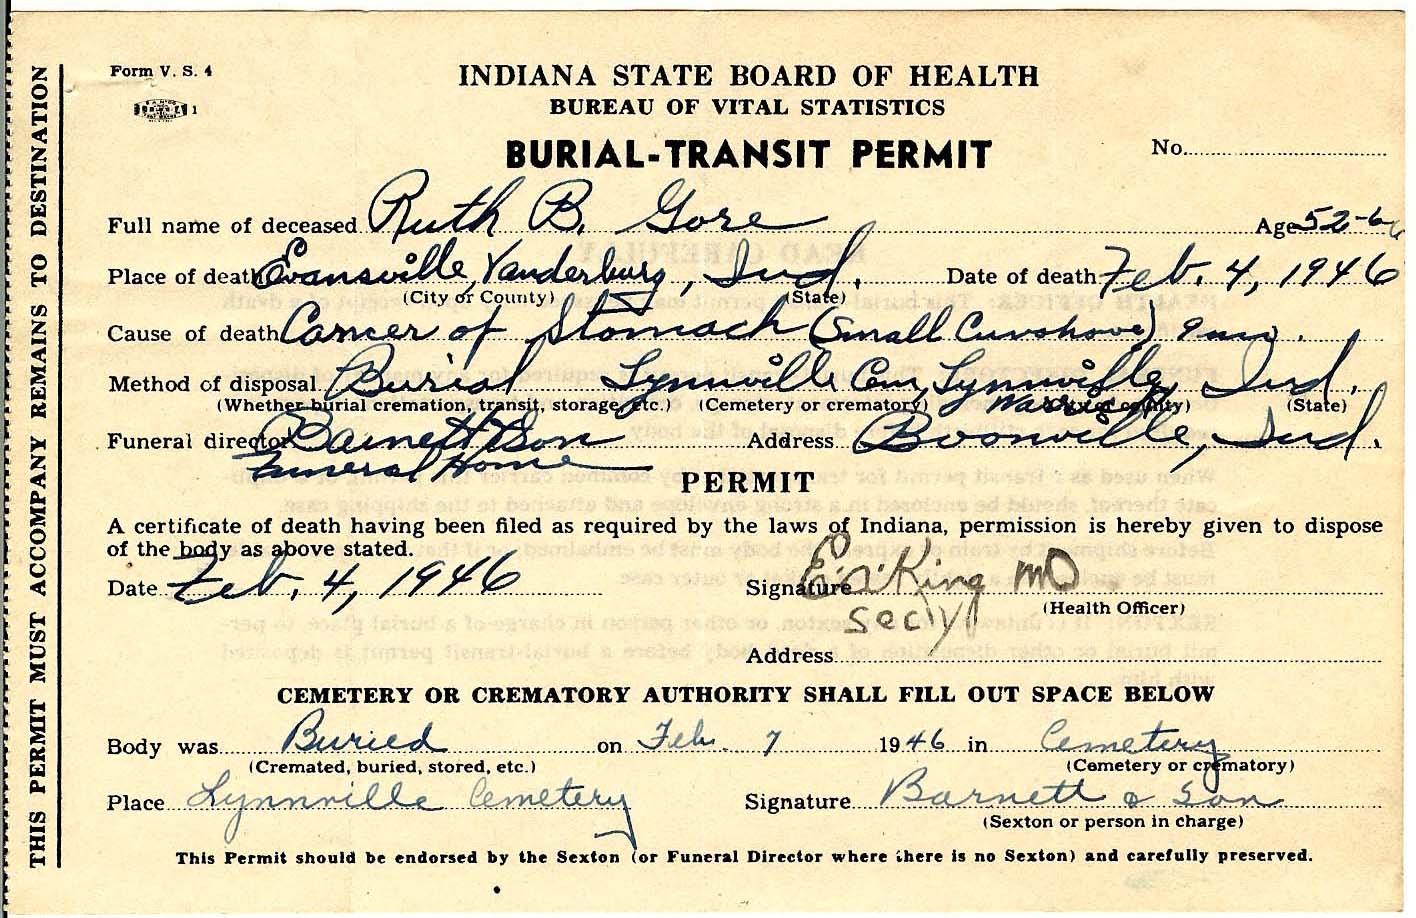 THIS PERMIT MUST ACCOMPANY REMAINS TO DESTINATION
Form V. S. 4
1
INDIANA STATE BOARD OF HEALTH
BUREAU OF VITAL STATISTICS
BURIAL-TRANSIT PERMIT
No.
Full name of deceased Ruth B. Gore Age 52-6
Place of death Evansville, Vanderburg, Ind. Date of death Feb. 4, 1946
(City or County) (State)
Cause of death Cancer of Stomach (Small
Method of disposal Burial Lynnville Cem, Lynnville, Ind.
(Whether burial cremation, transit, storage, etc.) (Cemetery or crematory) Warrick (City or county) (State)
Funeral director Barnett & Son Address Boonville, Ind.
Funeral Home
PERMIT
A certificate of death having been filed as required by the laws of Indiana, permission is hereby given to dispose
of the body as above stated.
Date Feb. 4, 1946 Signature King MD
(Health Officer)
Secy
Address
CEMETERY OR CREMATORY AUTHORITY SHALL FILL OUT SPACE BELOW
Body was Buried on Feb. 7 1946 in Cemetery
(Cremated, buried, stored, etc.) (Cemetery or crematory)
Place Lynnville Cemetery Signature Barnett & Son
(Sexton or person in charge)
This Permit should be endorsed by the Sexton (or Funeral Director where there is no Sexton) and carefully preserved.